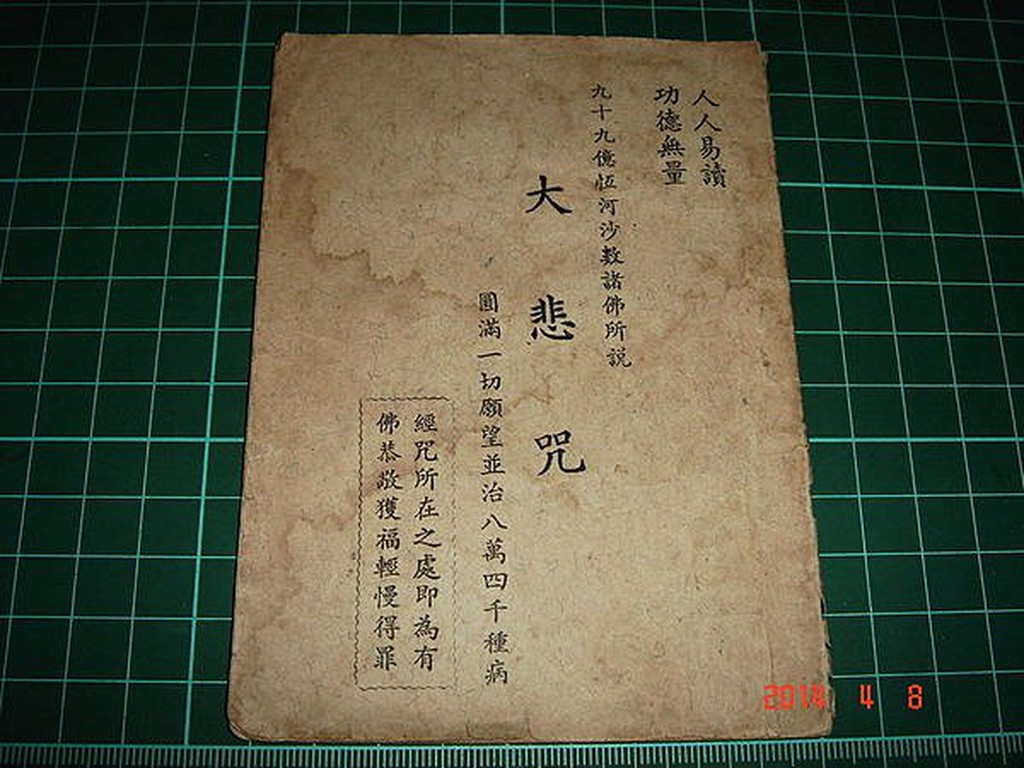 人人易讀
功德無量
九十九億恆河沙數諸佛所説
大悲咒
圓滿一切願望並治八萬四千種病
經咒所在之處即為有
佛恭敬獲福輕慢得罪
2014 4 8